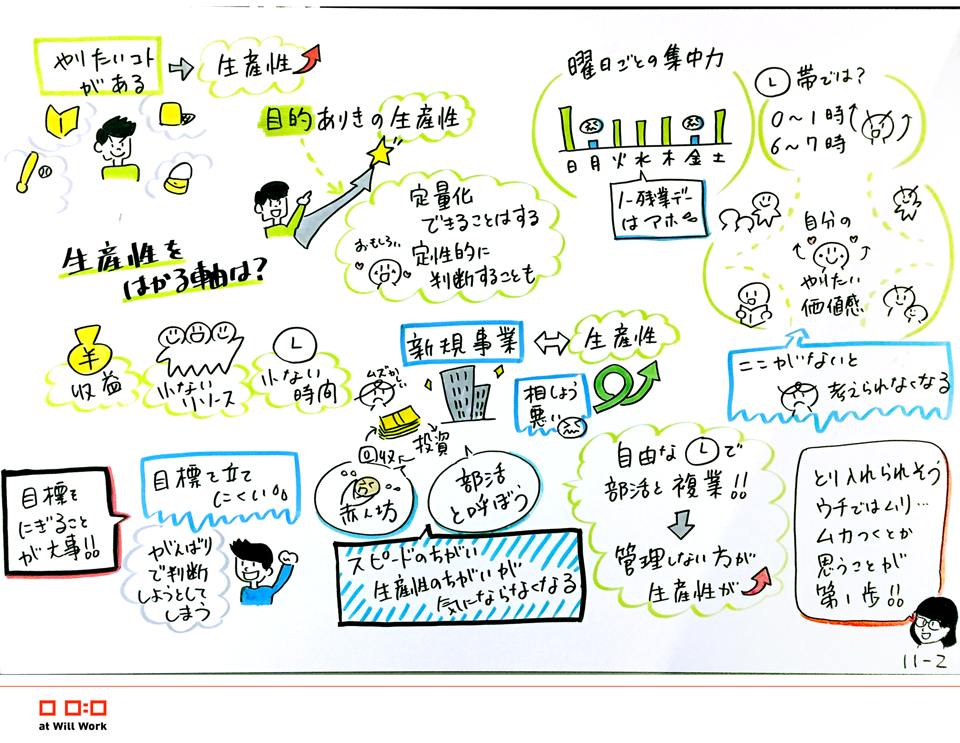 やりたいコト
がある
生産性
目的ありきの生産性
定量化
できることはする
おもしろい
定性的に
判断することも
曜日ごとの集中力
日月火水木金土
ノー残業デー
はアホ
L帯では?
0〜1時
6〜7時
自分の
やりたい
価値感
ここがないと
考えられなくなる
生産性を
はかる軸は?
¥
収益
少ない
リソース
L
少ない
時間
新規事業
生産性
ムズかしい
相しょう
悪い
投資
回収
赤ん坊
部活
と呼ぼう
スピードのちがい
生産性のちがいが
気にならなくなる
目標を
にぎること
が大事!!
目標を立て
にくい
がんばり
で判断
しようとして
しまう
自由なLで
部活と複業!!
管理しない方が
生産性が
とり入れられそう
ウチではムリ…
ムカつくとか
思うことが
第1歩!!
11-2
at Will Work